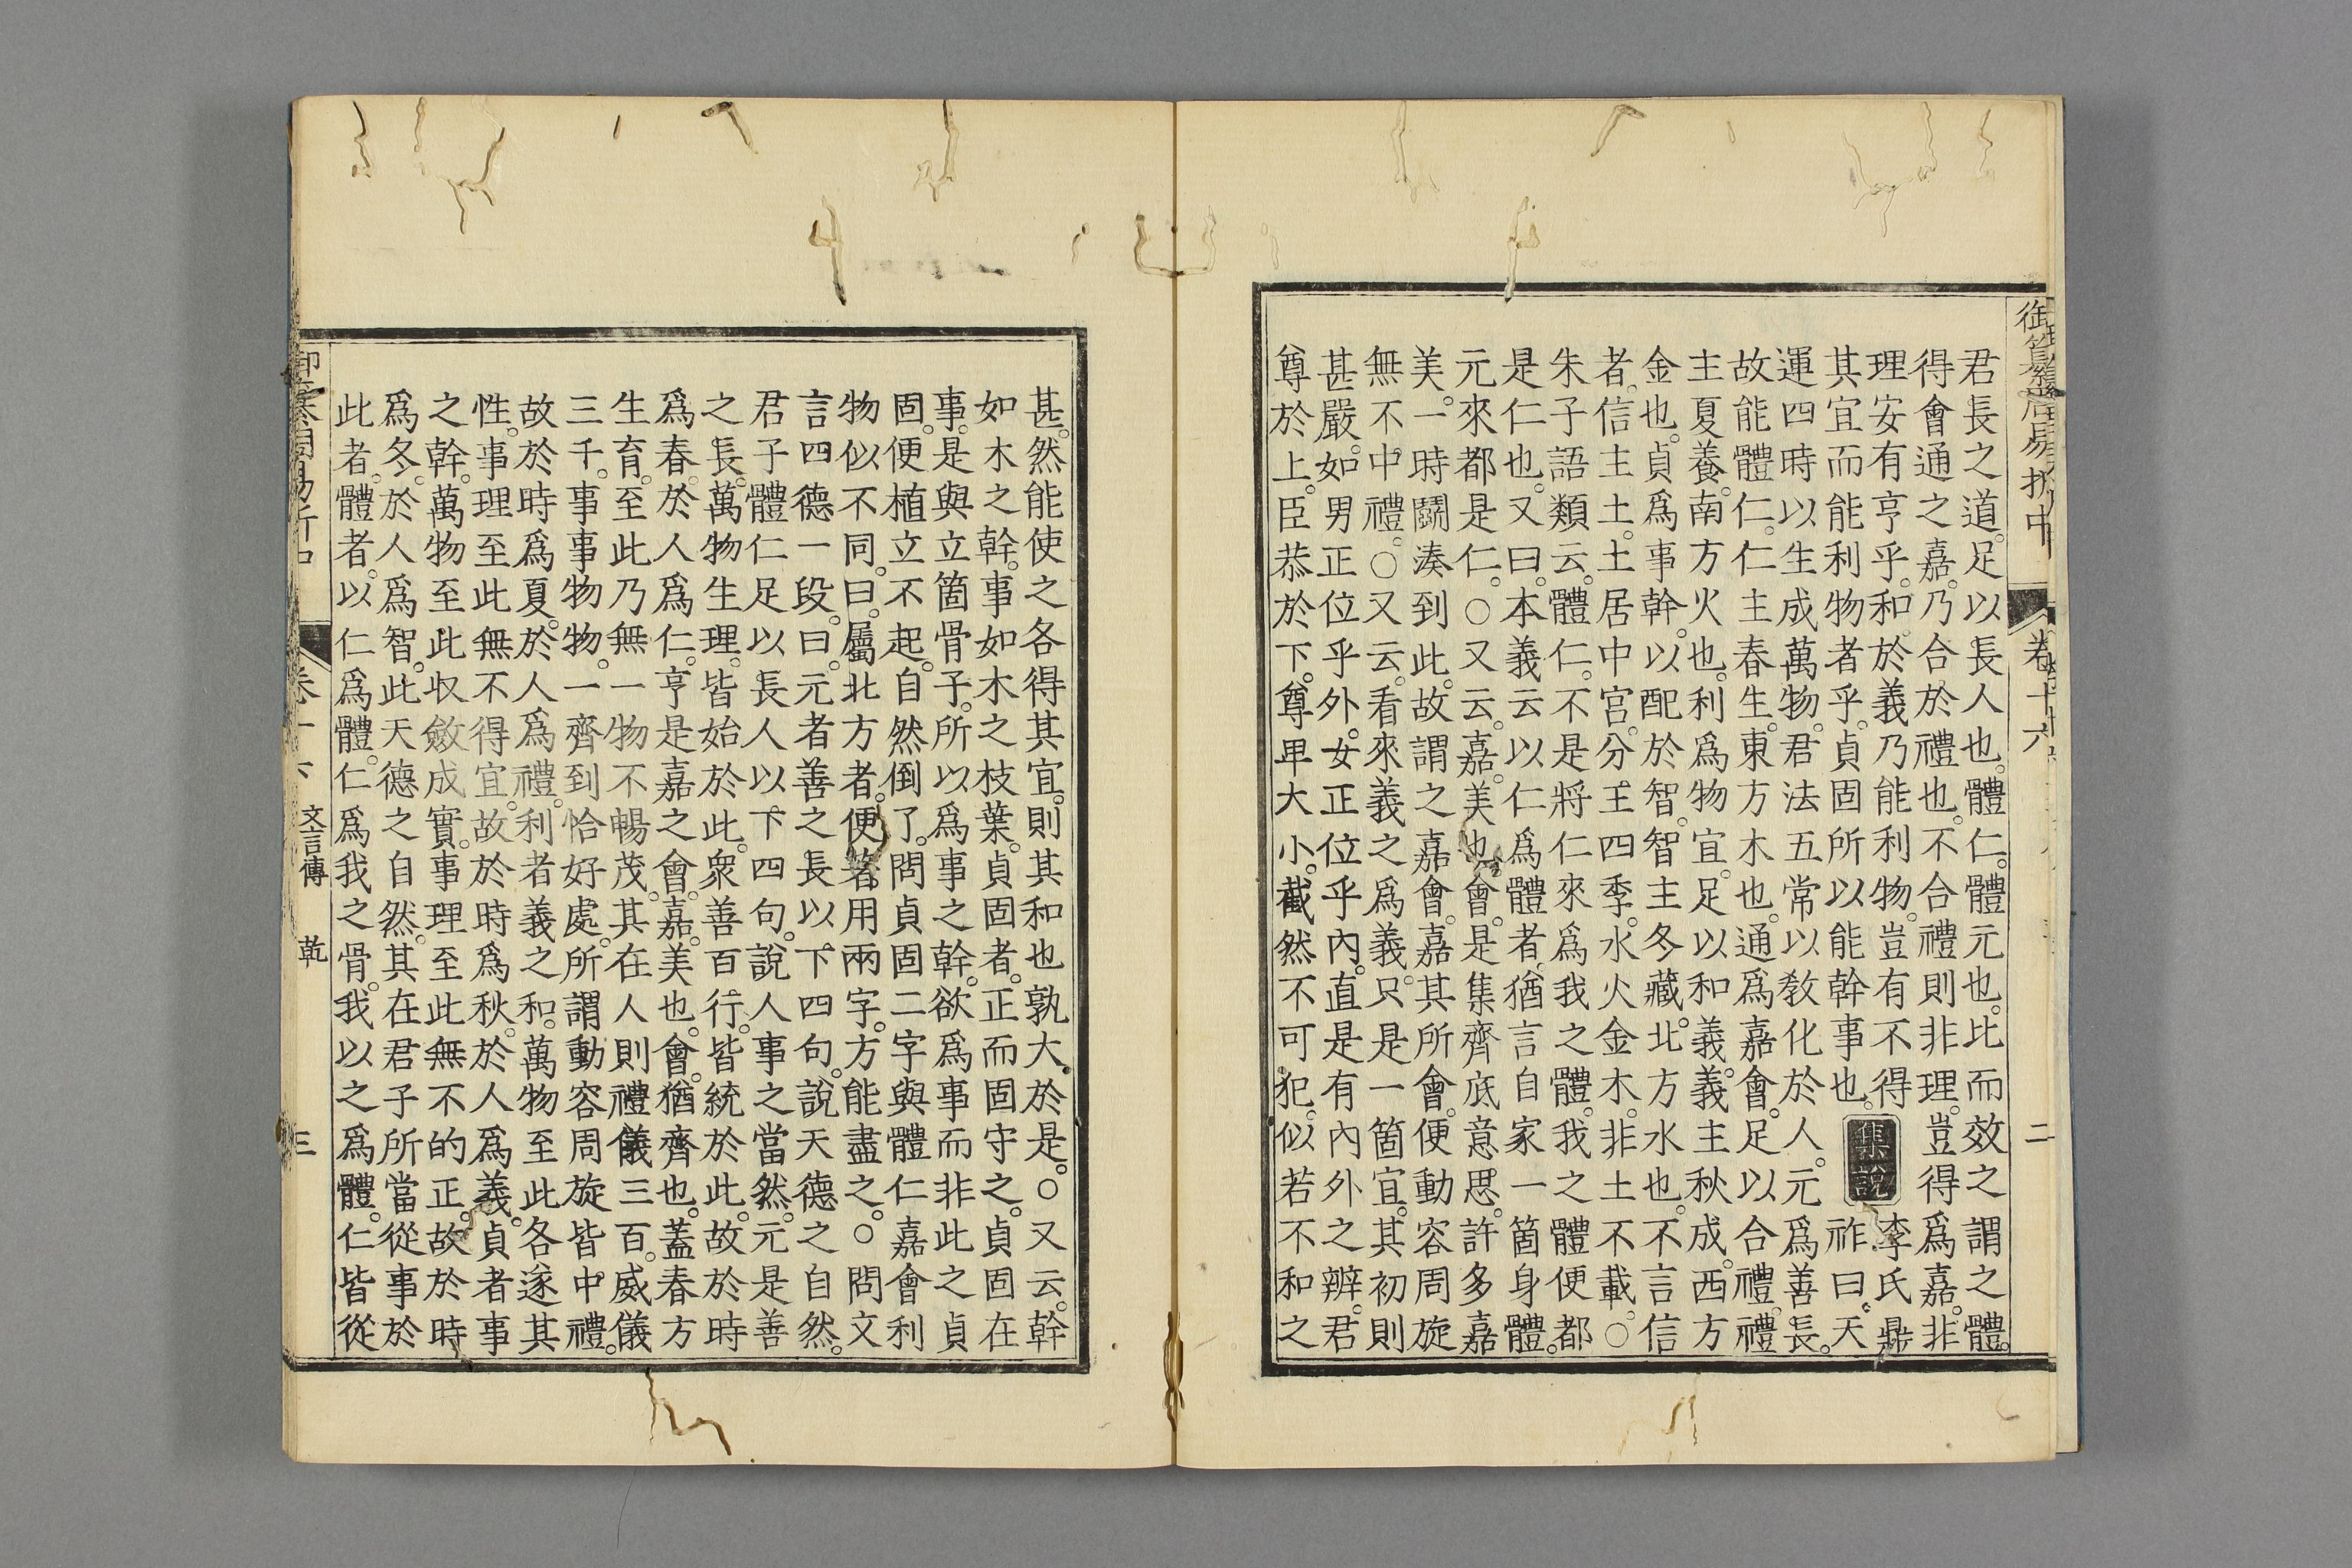 御纂周易折中 卷十六 二
君長之道。足以長人也。體仁。體元也。比而效之謂之體。
得會通之嘉。乃合於禮也。不合禮則非理。豈得爲嘉。非
理安有亨乎。和於義乃能利物。豈有不得
其宜而能利物者乎。貞固所以能幹事也。集說李氏鼎祚曰。天
運四時以生成萬物。君法五常以敎化於人。元爲善長。
故能體仁。仁主春生。東方木也。通爲嘉會。足以合禮。禮
主夏養。南方火也。利爲物宜。足以和義。義主秋成。西方
金也。貞爲事幹。以配於智。智主冬藏。北方水也。不言信
者。信主土。土居中宮。分王四季。水火金木。非土不載。○
朱子語類云。體仁。不是將仁來爲我之體。我之體便都
是仁也。又曰。本義云以仁爲體者。猶言自家一箇身體。
元來都是仁。○又云。嘉。美也。會。是集齊底意思。許多嘉
美。一時鬭湊到此。故謂之嘉會。嘉其所會。便動容周旋
無不中禮。○又云。看來義之爲義。只是一箇宜。其初則
甚嚴。如男正位乎外。女正位乎內。直是有內外之辨。君
尊於上。臣恭於下。尊卑大小。截然不可犯。似若不和之
甚。然能使之各得其宜。則其和也孰大於是。○又云。幹
如木之幹。事如木之枝葉。貞固者。正而固守之。貞固在
事。是與立箇骨子。所以爲事之幹。欲爲事而非此之貞
固。便植立不起。自然倒了。問貞固二字。與體仁嘉會利
物似不同。曰。屬北方者。便著用兩字。方能盡之。○問文
言四德一段。曰。元者善之長以下四句。說天德之自然。
君子體仁足以長人以下四句。說人事之當然。元是善
之長。萬物生理。皆始於此。衆善百行。皆統於此。故於時
爲春。於人爲仁。亨是嘉之會。嘉。美也。會。猶齊也。蓋春方
生育。至此乃無一物不暢茂。其在人則禮儀三百。威儀
三千。事事物物。一齊到恰好處。所謂動容周旋皆中禮。
故於時爲夏。於人爲禮。利者義之和。萬物至此各遂其
性。事理至此無不得宜。故於時爲秋。於人爲義。貞者事
之幹。萬物至此收斂成實。事理至此無不的正。故於時
爲冬。於人爲智。此天德之自然。其在君子所當從事於
此者。體者。以仁爲體。仁爲我之骨。我以之爲體。仁皆從
御纂周易折中 卷十六 文言傳 乾 三